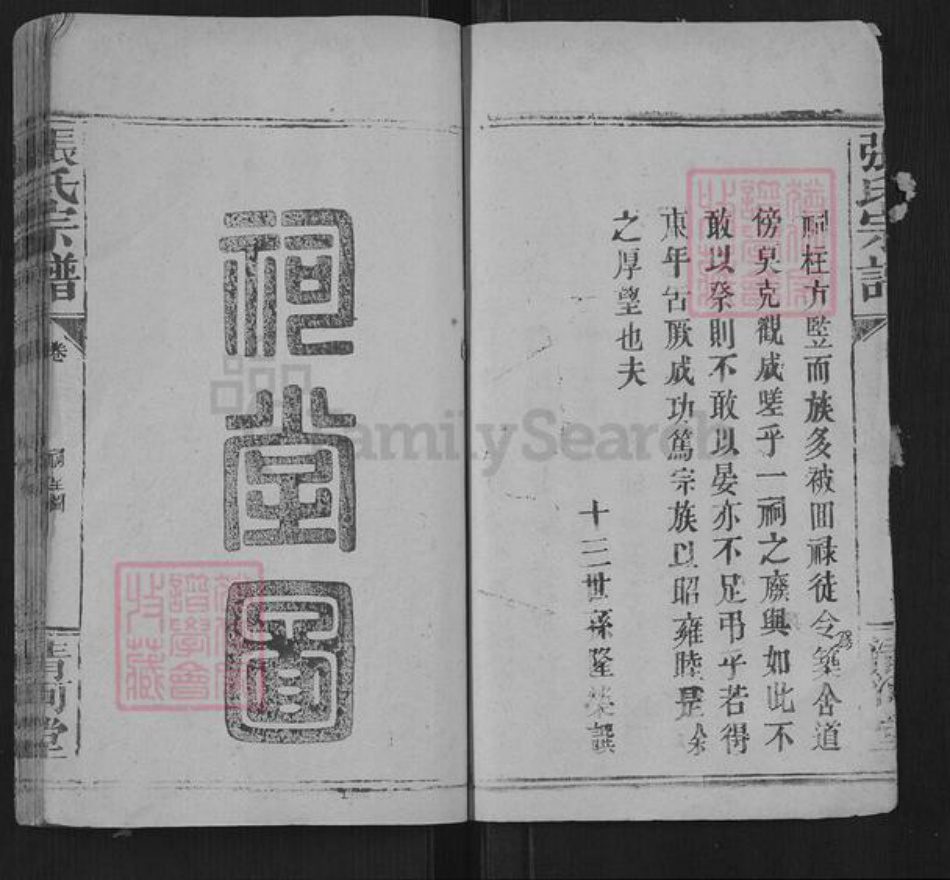 張氏宗譜
祠枉方監而族多被回祿徒令築舍道
傍莫克觀成嗟乎一祠之廢與如此不
敢以祭則不敢以晏亦不足弔乎若得
東年吉厥成功篤宗族以昭雍睦是余
之厚望也夫
十三世孫隆 譔
清河堂
祠堂圖
張氏宗譜
卷
祠堂圖
清河堂
FamilySearch
譜學會
收藏
譜學會
收藏